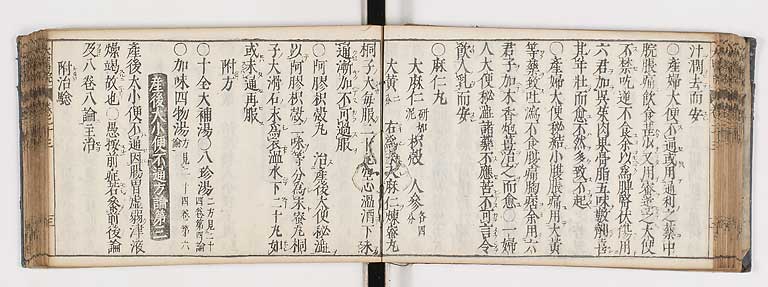 汁潤去而安
○産婦大便不通或用通利之藥中
脘脹痛飲食甚少又用藥大便
不禁吃逆不食余以為脾腎用
六君加呉茱肉果骨脂五味數劑喜
其年壯而愈不然多致不起
○産婦大便秘結小腹脹痛用大黃
等藥致吐瀉不食腹痛胸痞余用六
君子加木香炮姜治之而愈○一婦
人大便秘澁諸藥不應苦不可言令
飲人乳而安
○麻仁丸
大麻仁 研如泥 枳殼 人參 各四分
大黃 二 右為末 大麻仁煉蜜丸
桐子大每服二十丸空心温酒下未
通漸加不可過服
○阿膠枳殼丸 治産後大便秘澁
以阿膠枳殼二味等分為末蜜丸桐
子大滑石末為衣温水下二十丸如
或未通再服
附方
○十全大補湯○八珍湯 二方見二十四卷第四論
○加味四物湯 方見二十四卷第六
産後大小便不通方論第三
産後大小便不通因腸胃虚弱津液
燥竭故也○愚按前症若參前後論
及八卷八論主治
附治驗